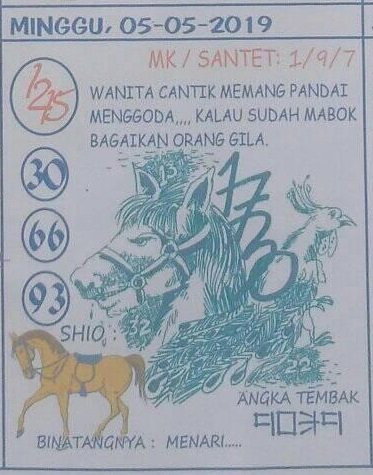 MINGGU, 05-05-2019
MK / SANTET: 1/9/7
1245
WANITA CANTIK MEMANG PANDAI
MENGGODA,,,, KALAU SUDAH MABOK
BAGAIKAN ORANG GILA.
13
30
66
93
SHIO :
32
22
ANGKA TEMBAK
BINATANGNYA : MENARI.....